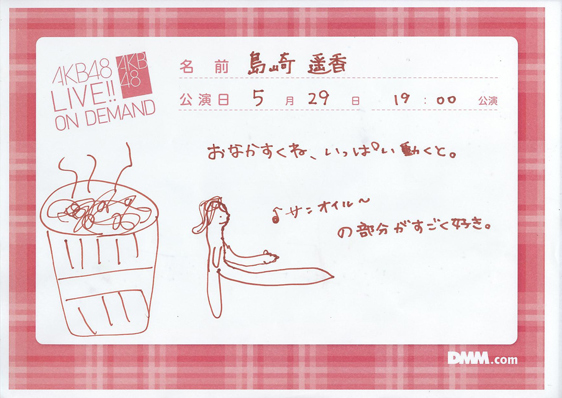 AKB48
LIVE!!
ON DEMAND
AKB
48
名前 島崎 遥香
公演日 5月29日 19:00 公演
おなかすくね、いっぱい動くと。
♪サンオイル〜
の部分がすごく好き。
DMM.com